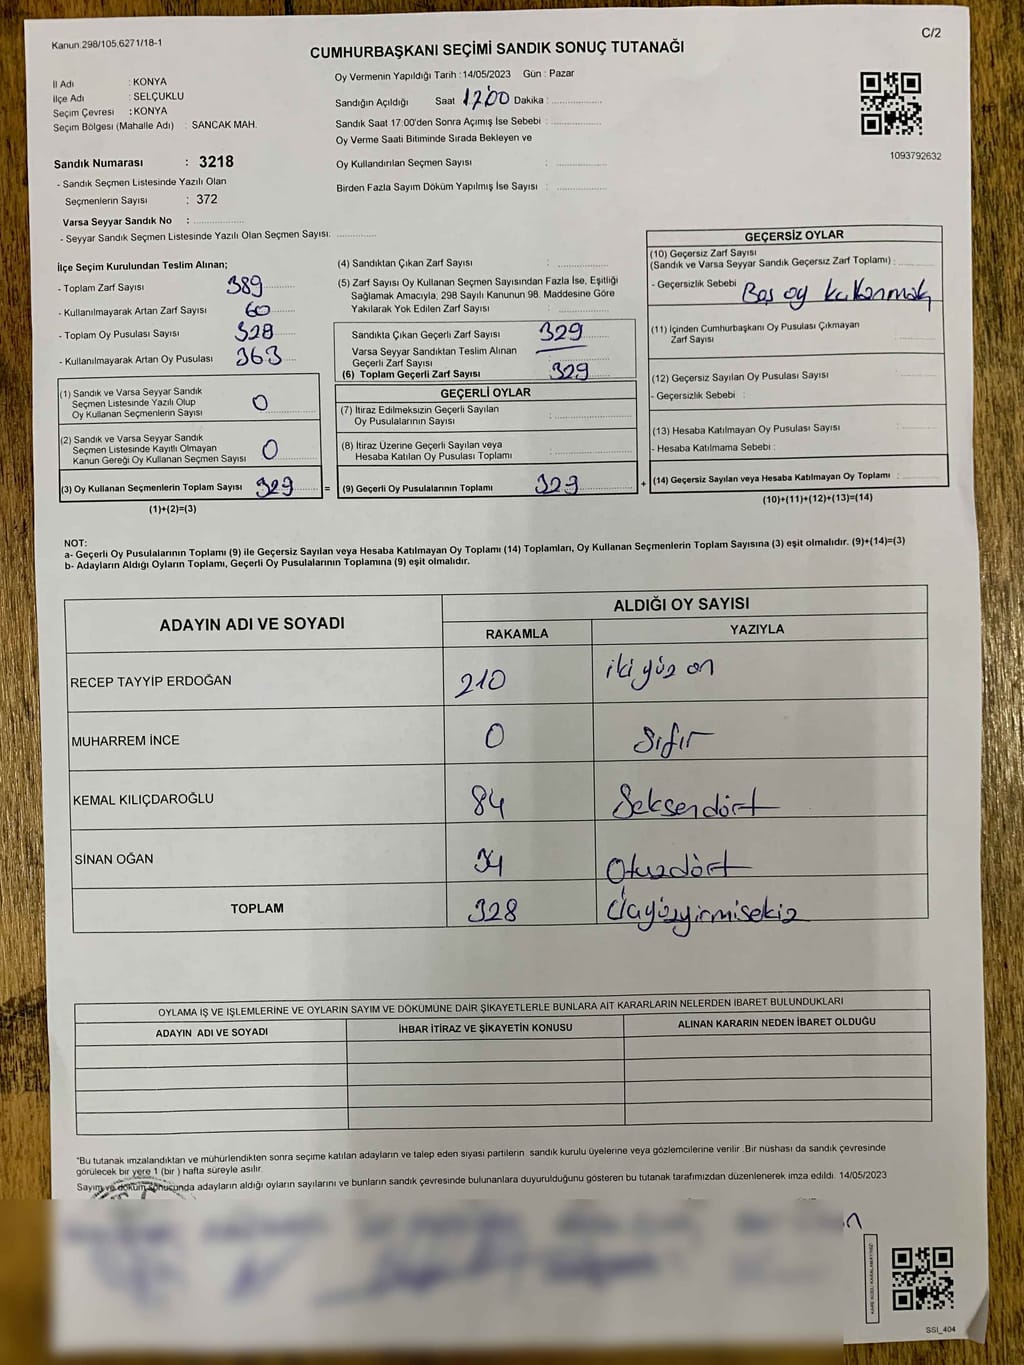 Kanun.298/105,6271/18-1
C/2
CUMHURBAŞKANI SEÇİMİ SANDIK SONUÇ TUTANAĞI
İl Adı : KONYA
İlçe Adı : SELÇUKLU
Seçim Çevresi : KONYA
Seçim Bölgesi (Mahalle Adı) : SANCAK MAH.
Sandık Numarası : 3218
- Sandık Seçmen Listesinde Yazılı Olan
Seçmenlerin Sayısı : 372
Varsa Seyyar Sandık No :
- Seyyar Sandık Seçmen Listesinde Yazılı Olan Seçmen Sayısı:
Oy Vermenin Yapıldığı Tarih : 14/05/2023 Gün : Pazar
Sandığın Açıldığı Saat 17:00 Dakika :
Sandık Saat 17:00'den Sonra Açımış İse Sebebi :
Oy Verme Saati Bitiminde Sırada Bekleyen ve
Oy Kullandırılan Seçmen Sayısı :
Birden Fazla Sayım Döküm Yapılmış İse Sayısı :
1093792632
İlçe Seçim Kurulundan Teslim Alınan;
- Toplam Zarf Sayısı 389
- Kullanılmayarak Artan Zarf Sayısı 60
- Toplam Oy Pusulası Sayısı 328
- Kullanılmayarak Artan Oy Pusulası 363
(1) Sandık ve Varsa Seyyar Sandık
Seçmen Listesinde Yazılı Olup
Oy Kullanan Seçmenlerin Sayısı 0
(2) Sandık ve Varsa Seyyar Sandık
Seçmen Listesinde Kayıtlı Olmayan
Kanun Gereği Oy Kullanan Seçmen Sayısı 0
(3) Oy Kullanan Seçmenlerin Toplam Sayısı 329 =
(1)+(2)=(3)
(4) Sandıktan Çıkan Zarf Sayısı :
(5) Zarf Sayısı Oy Kullanan Seçmen Sayısından Fazla İse, Eşitliği
Sağlamak Amacıyla, 298 Sayılı Kanunun 98. Maddesine Göre
Yakılarak Yok Edilen Zarf Sayısı :
Sandıkta Çıkan Geçerli Zarf Sayısı 329
Varsa Seyyar Sandıktan Teslim Alınan
Geçerli Zarf Sayısı
(6) Toplam Geçerli Zarf Sayısı 329
GEÇERLİ OYLAR
(7) İtiraz Edilmeksizin Geçerli Sayılan
Oy Pusulalarının Sayısı :
(8) İtiraz Üzerine Geçerli Sayılan veya
Hesaba Katılan Oy Pusulası Toplamı :
(9) Geçerli Oy Pusulalarının Toplamı 329 +
GEÇERSİZ OYLAR
(10) Geçersiz Zarf Sayısı
(Sandık ve Varsa Seyyar Sandık Geçersiz Zarf Toplamı) :
- Geçersizlik Sebebi Boş oy kullanmak
(11) İçinden Cumhurbaşkanı Oy Pusulası Çıkmayan
Zarf Sayısı :
(12) Geçersiz Sayılan Oy Pusulası Sayısı :
- Geçersizlik Sebebi :
(13) Hesaba Katılmayan Oy Pusulası Sayısı :
- Hesaba Katılmama Sebebi :
(14) Geçersiz Sayılan veya Hesaba Katılmayan Oy Toplamı :
(10)+(11)+(12)+(13)=(14)
NOT:
a- Geçerli Oy Pusulalarının Toplamı (9) ile Geçersiz Sayılan veya Hesaba Katılmayan Oy Toplamı (14) Toplamları, Oy Kullanan Seçmenlerin Toplam Sayısına (3) eşit olmalıdır. (9)+(14)=(3)
b- Adayların Aldığı Oyların Toplamı, Geçerli Oy Pusulalarının Toplamına (9) eşit olmalıdır.
ADAYIN ADI VE SOYADI
ALDIĞI OY SAYISI
RAKAMLA YAZIYLA
RECEP TAYYİP ERDOĞAN 210 iki yüz on
MUHARREM İNCE 0 Sıfır
KEMAL KILIÇDAROĞLU 84 Seksendört
SİNAN OĞAN 34 Otuzdört
TOPLAM 328 Üçyüzyirmisekiz
OYLAMA İŞ VE İŞLEMLERİNE VE OYLARIN SAYIM VE DÖKÜMÜNE DAİR ŞİKAYETLERLE BUNLARA AİT KARARLARIN NELERDEN İBARET BULUNDUKLARI
ADAYIN ADI VE SOYADI İHBAR İTİRAZ VE ŞİKAYETİN KONUSU ALINAN KARARIN NEDEN İBARET OLDUĞU
*Bu tutanak imzalandıktan ve mühürlendikten sonra seçime katılan adayların ve talep eden siyasi partilerin sandık kurulu üyelerine veya gözlemcilerine verilir .Bir nüshası da sandık çevresinde
görülecek bir yere 1 (bir ) hafta süreyle asılır.
Sayım ve döküm sonucunda adayların aldığı oyların sayılarını ve bunların sandık çevresinde bulunanlara duyurulduğunu gösteren bu tutanak tarafımızdan düzenlenerek imza edildi. 14/05/2023
SSI_404